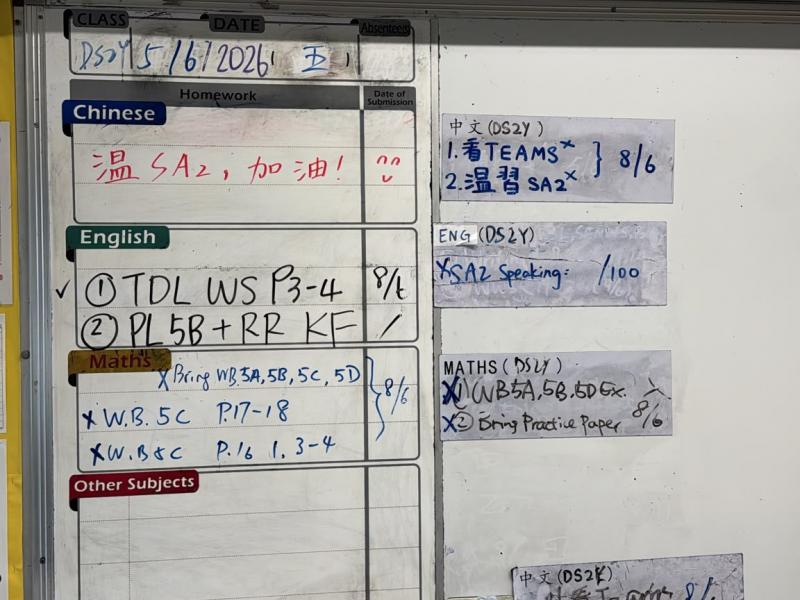 CLASS DATE Absentees
DS2Y 5/6/2026 (五)
Homework Date of Submission
Chinese
温 SA2, 加油!
English
✓ ① TDL WS P3-4 8/6
② PL 5B + RR KF /
Maths
X Bring WB 5A, 5B, 5C, 5D
X W.B. 5C P.17-18 } 8/6
X W.B 5C P.16 1, 3-4
Other Subjects
中文(DS2Y)
1.看TEAMS X
2.温習SA2 X } 8/6
ENG (DS2Y)
X SA2 Speaking: /100
MATHS (DS2Y)
X 1) WB5A, 5B, 5D Ex.
X ② Bring Practice Paper 8/6
中文(DS2K)